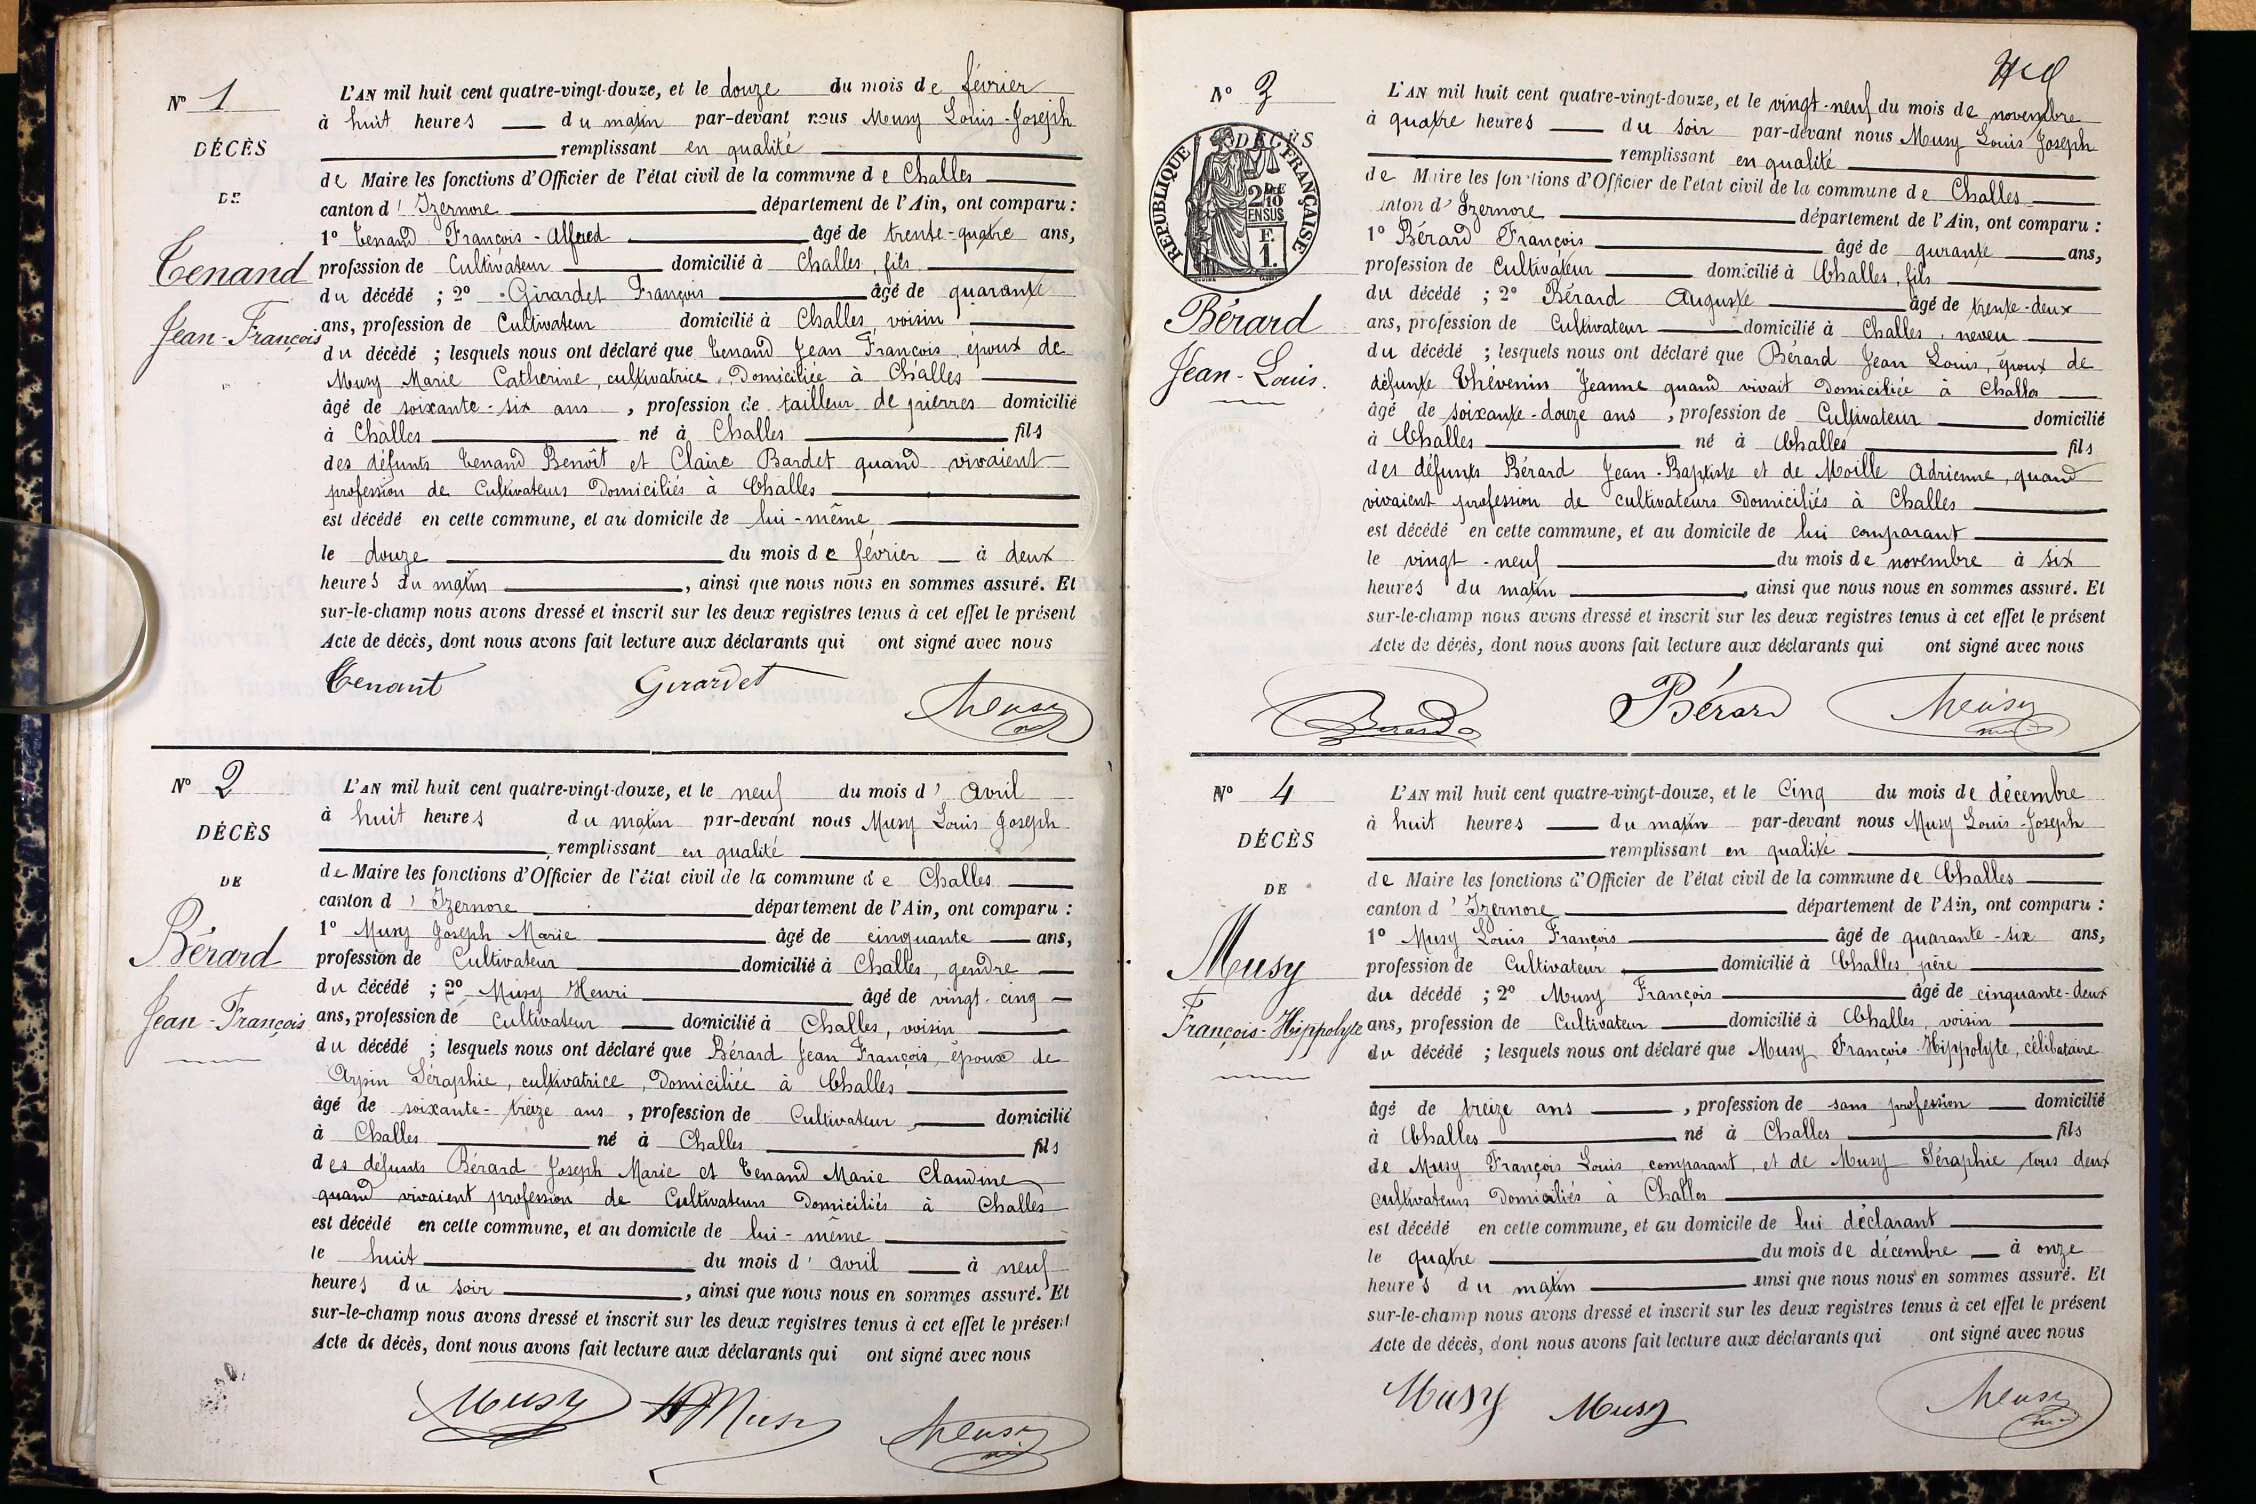 N° 1
DÉCÈS
DE
Tenand
Jean-François
L'AN mil huit cent quatre-vingt-douze, et le douze du mois de février
à huit heures du matin par-devant nous Musy Louis-Joseph
remplissant en qualité
de Maire les fonctions d'Officier de l'état civil de la commune de Challes
canton d'Izernore département de l'Ain, ont comparu :
1° Tenand François-Alfred âgé de trente-quatre ans,
profession de Cultivateur domicilié à Challes, fils
du décédé ; 2° Girardet François âgé de quarante
ans, profession de Cultivateur domicilié à Challes, voisin
du décédé ; lesquels nous ont déclaré que Tenand Jean François, époux de
Musy Marie Catherine, cultivatrice, Domiciliée à Challes
âgé de soixante-six ans, profession de tailleur de pierres domicilié
à Challes né à Challes fils
des défunts Tenand Benoît et Claire Bardet quand vivaient
profession de Cultivateurs Domiciliés à Challes
est décédé en cette commune, et au domicile de lui-même
le douze du mois de février à deux
heures du matin, ainsi que nous nous en sommes assuré. Et
sur-le-champ nous avons dressé et inscrit sur les deux registres tenus à cet effet le présent
Acte de décès, dont nous avons fait lecture aux déclarants qui ont signé avec nous
Tenant Girardet Musy
N° 2
DÉCÈS
DE
Bérard
Jean-François
L'AN mil huit cent quatre-vingt-douze, et le neuf du mois d'avril
à huit heures du matin par-devant nous Musy Louis Joseph
remplissant en qualité
de Maire les fonctions d'Officier de l'état civil de la commune de Challes
canton d'Izernore département de l'Ain, ont comparu :
1° Musy Joseph Marie âgé de cinquante ans,
profession de Cultivateur domicilié à Challes, gendre
du décédé ; 2° Musy Henri âgé de vingt-cinq
ans, profession de Cultivateur domicilié à Challes, voisin
du décédé ; lesquels nous ont déclaré que Bérard Jean François, époux de
Arpin Séraphie, cultivatrice, Domiciliée à Challes
âgé de soixante-treize ans, profession de Cultivateur domicilié
à Challes né à Challes fils
des défunts Bérard Joseph Marie et Tenand Marie Claudine
quand vivaient profession de Cultivateurs Domiciliés à Challes
est décédé en cette commune, et au domicile de lui-même
le huit du mois d'avril à neuf
heures du soir, ainsi que nous nous en sommes assuré. Et
sur-le-champ nous avons dressé et inscrit sur les deux registres tenus à cet effet le présent
Acte de décès, dont nous avons fait lecture aux déclarants qui ont signé avec nous
Musy H Musy Musy
N° 3
DÉCÈS
RÉPUBLIQUE FRANÇAISE
2 DES 10
EN SUS
F. 1.
Bérard
Jean-Louis.
L'AN mil huit cent quatre-vingt-douze, et le vingt-neuf du mois de novembre
à quatre heures du soir par-devant nous Musy Louis Joseph
remplissant en qualité
de Maire les fonctions d'Officier de l'état civil de la commune de Challes
canton d'Izernore département de l'Ain, ont comparu :
1° Bérard François âgé de quarante ans,
profession de Cultivateur domicilié à Challes, fils
du décédé ; 2° Bérard Auguste âgé de trente-deux
ans, profession de Cultivateur domicilié à Challes, neveu
du décédé ; lesquels nous ont déclaré que Bérard Jean Louis, époux de
défunte Thévenin Jeanne quand vivait Domiciliée à Challes
âgé de soixante-douze ans, profession de Cultivateur domicilié
à Challes né à Challes fils
des défunts Bérard Jean-Baptiste et de Moille Adrienne, quand
vivaient profession de cultivateurs Domiciliés à Challes
est décédé en cette commune, et au domicile de lui comparant
le vingt-neuf du mois de novembre à six
heures du matin, ainsi que nous nous en sommes assuré. Et
sur-le-champ nous avons dressé et inscrit sur les deux registres tenus à cet effet le présent
Acte de décès, dont nous avons fait lecture aux déclarants qui ont signé avec nous
Berard Bérard Musy
N° 4
DÉCÈS
DE
Musy
François-Hippolyte
L'AN mil huit cent quatre-vingt-douze, et le Cinq du mois de décembre
à huit heures du matin par-devant nous Musy Louis-Joseph
remplissant en qualité
de Maire les fonctions d'Officier de l'état civil de la commune de Challes
canton d'Izernore département de l'Ain, ont comparu :
1° Musy Louis François âgé de quarante-six ans,
profession de Cultivateur domicilié à Challes, père
du décédé ; 2° Musy François âgé de cinquante-deux
ans, profession de Cultivateur domicilié à Challes, voisin
du décédé ; lesquels nous ont déclaré que Musy François-Hippolyte, célibataire
âgé de treize ans, profession de sans profession domicilié
à Challes né à Challes fils
de Musy François Louis, comparant, et de Musy Séraphie tous deux
cultivateurs Domiciliés à Challes
est décédé en cette commune, et au domicile de lui déclarant
le quatre du mois de décembre à onze
heures du matin ainsi que nous nous en sommes assuré. Et
sur-le-champ nous avons dressé et inscrit sur les deux registres tenus à cet effet le présent
Acte de décès, dont nous avons fait lecture aux déclarants qui ont signé avec nous
Musy Musy Musy